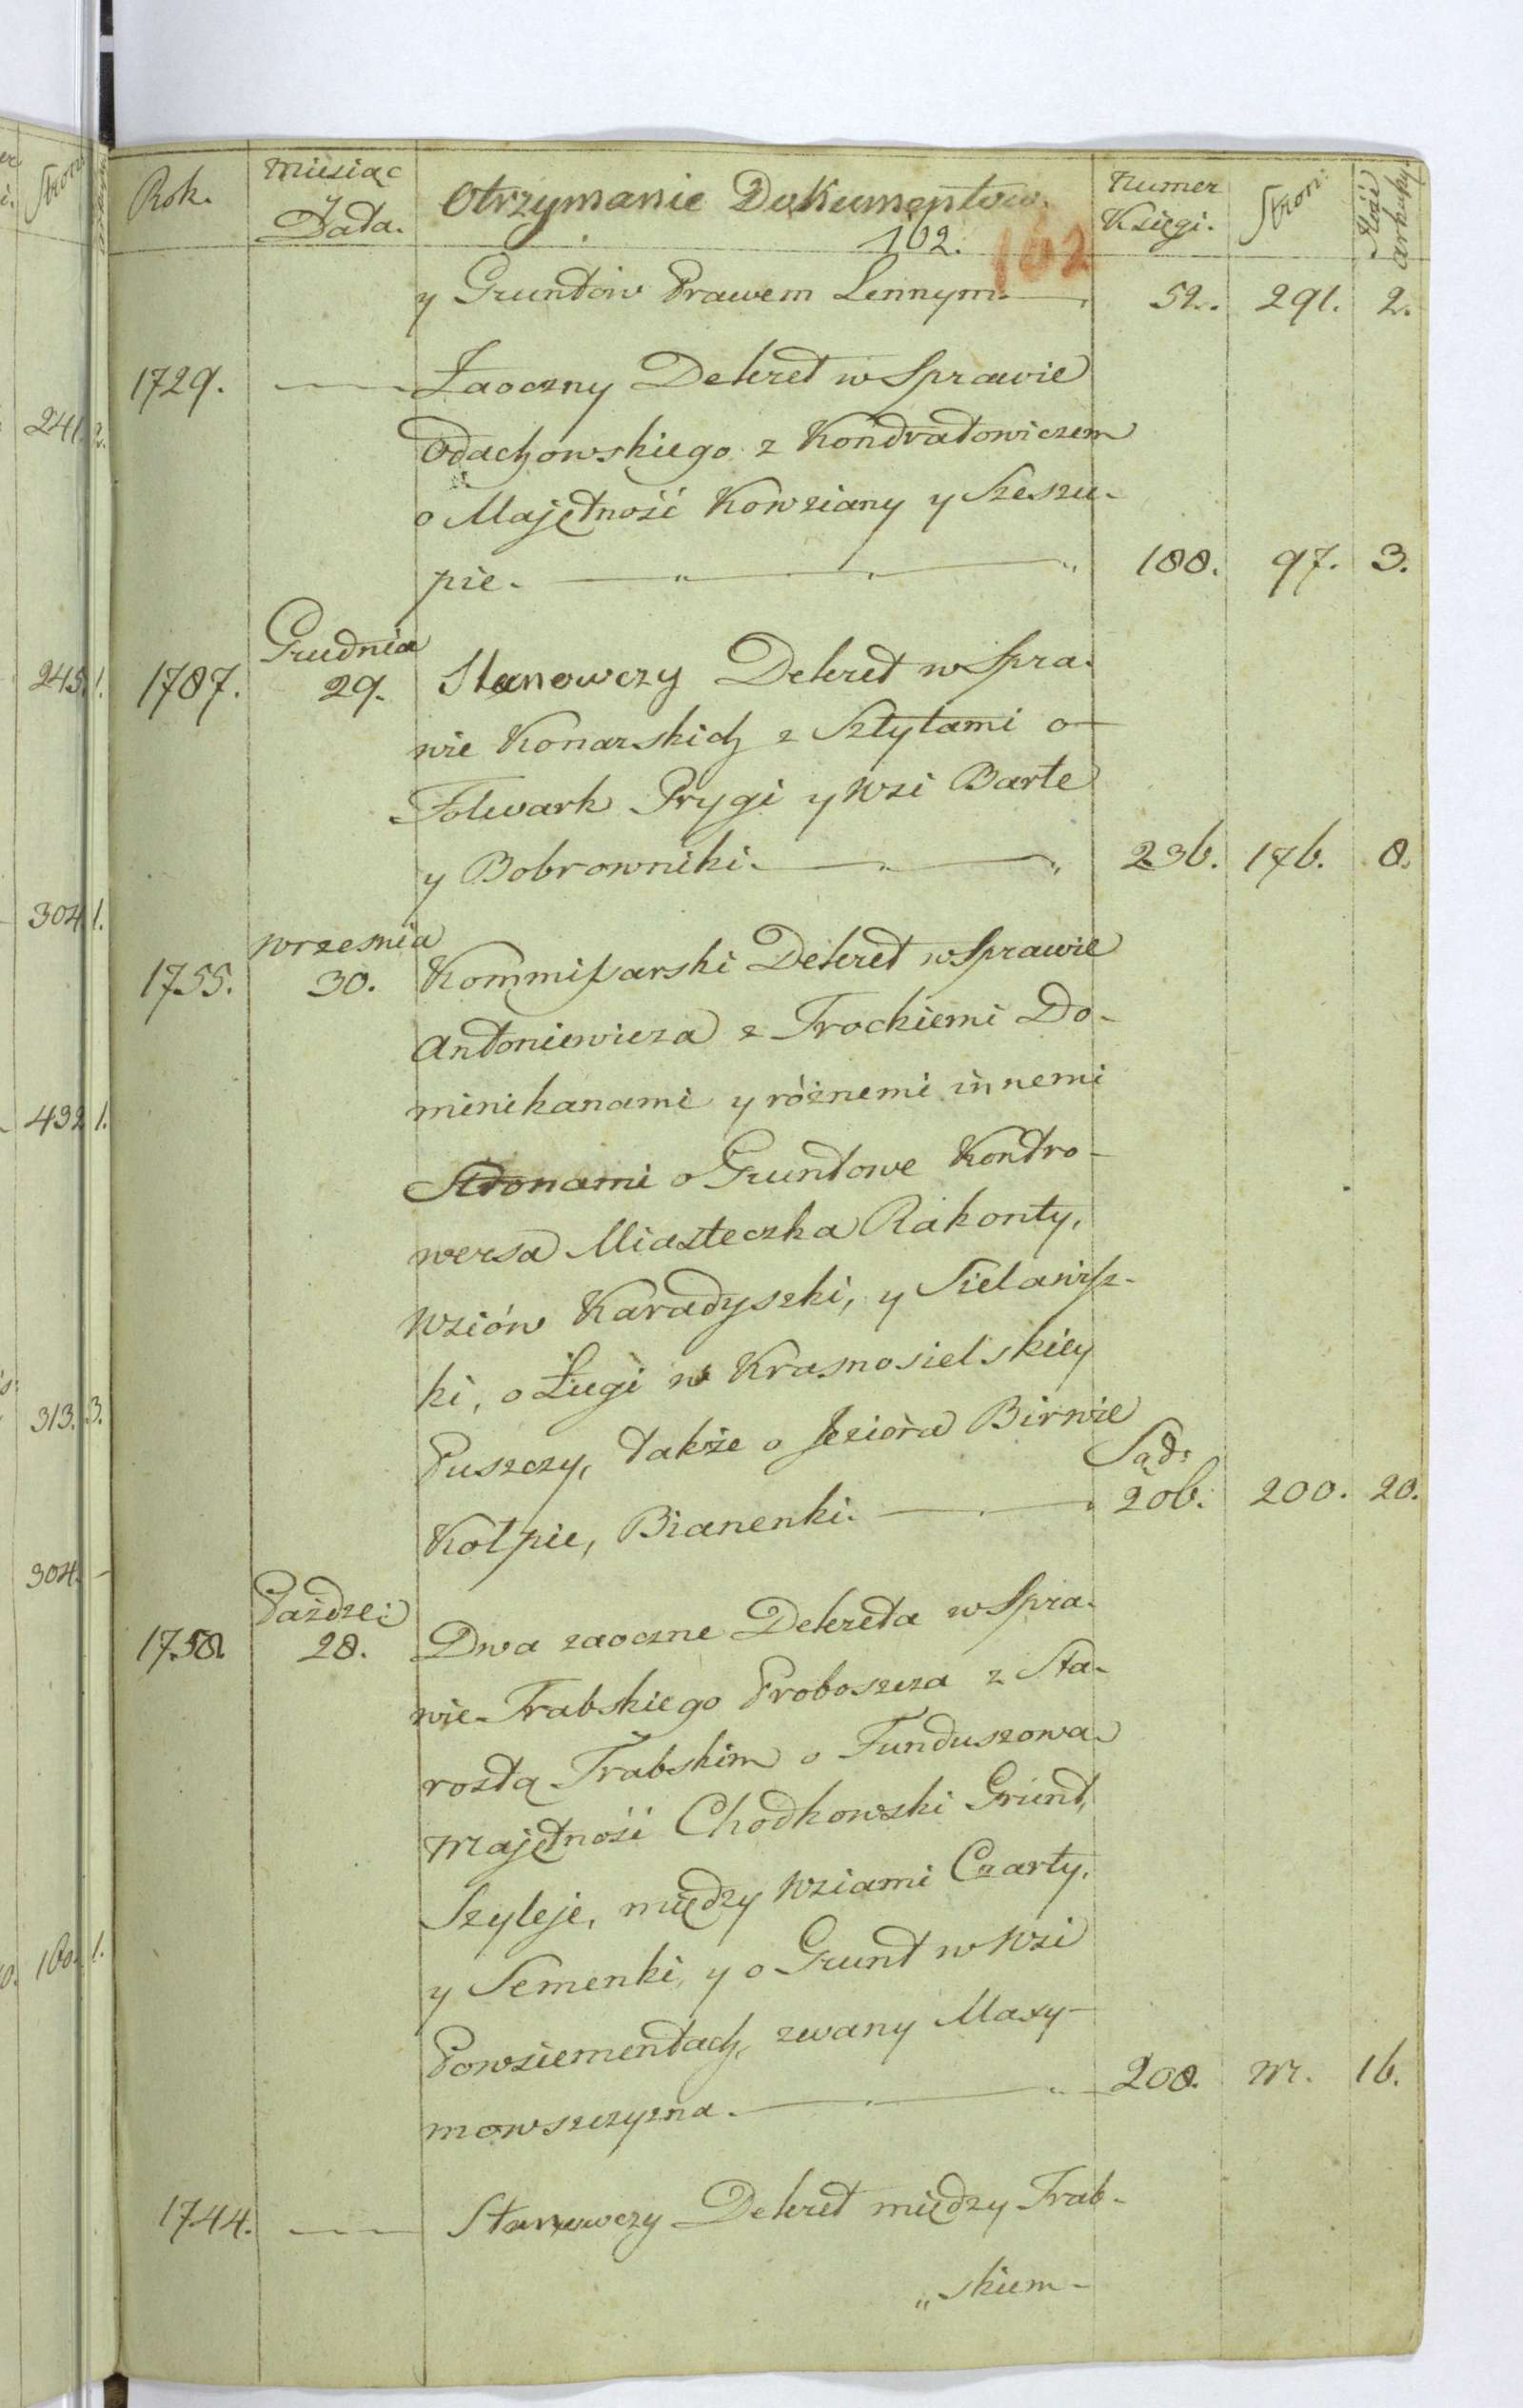 Rok.
Miesiąc
y
Data.
Otrzymanie Dokumentow.
Numer
Księgi.
Stron:
Ilość
arkuszy.
102. 102
y Gruntów Prawem Lennym. 52. 291. 2.
1729. Zaoczny Dekret w Sprawie
Odachowskiego z Kondratowiczem
o Majętność Kowziany y Szeszu-
pie. 188. 97. 3.
Grudnia
1787. 29. Stanowczy Dekret w Spra-
wie Konarskich z Sztytami o
Folwark Prygi y Wsi Barte
y Bobrowniki. 236. 176. 8.
Wrzesnia
1755. 30. Kommissarski Dekret w Sprawie
Antoniewicza z Trockiemi Do-
minikanami y różnemi innemi
Stronami o Gruntowe Kontro-
wersa Miasteczka Rakonty,
Wsiów Karadyszki, y Sielawisz-
ki, o Ługi w Krasnosielskiey
Puszczy, także o Jeziora Birwie
Sąd:
Kołpie, Bianenki. 206. 200. 20.
Paźdze:
1758. 28. Dwa zaoczne Dekreta w Spra-
wie Trabskiego Proboszcza z Sta-
rostą Trabskim o Funduszowa
Majętność Chodkowski Grunt,
Szyleje, między Wsiami Czarty,
y Semenki, y o Grunt w Wsi
Powsiementach, zwany Maxy-
mowszczyzna. 208. Nr. 16.
1744. Stanowczy Dekret między Trab-
„skiem-
241. 2.
245. 1.
304 1.
432 1.
313. 3.
304. -
160. 1.